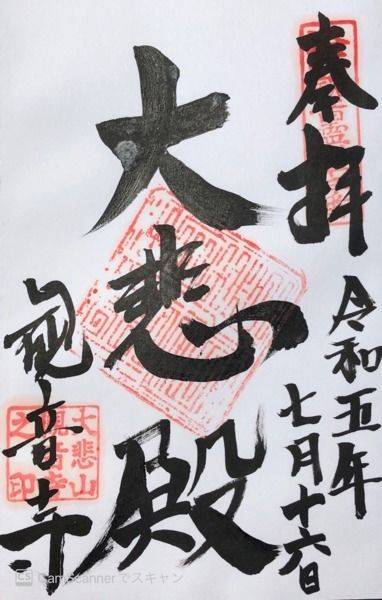 奉拝
令和五年
七月十六日
大悲殿
観音寺
大悲山
観音寺
之印
CS CamScanner でスキャン